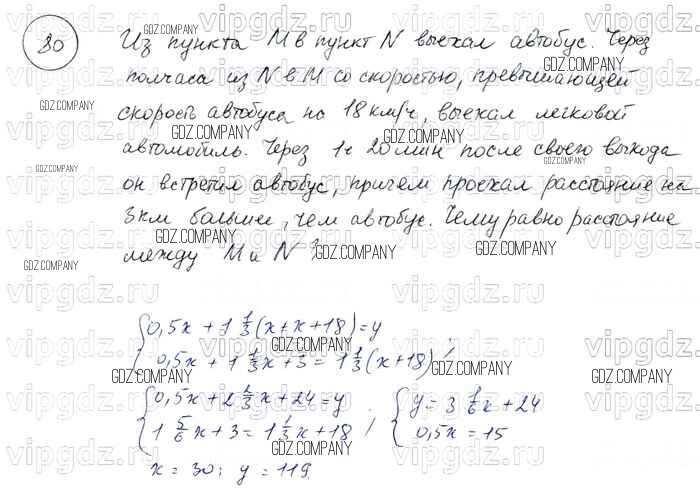 80 Из пункта M в пункт N выехал автобус. Через
полчаса из N в M со скоростью, превышающей
скорость автобуса на 18 км/ч, выехал легковой
автомобиль. Через 1ч 20 мин после своего выхода
он встретил автобус, причем проехал расстояние на
3км больше, чем автобус. Чему равно расстояние
между M и N?
0,5x + 1 1/3 (x + x + 18) = y
0,5x + 1 1/3 x + 3 = 1 1/3 (x + 18) ;
0,5x + 2 2/3 x + 24 = y
1 5/6 x + 3 = 1 1/3 x + 18 ;
y = 3 1/6 x + 24
0,5x = 15
x = 30; y = 119.
GDZ.COMPANY
vipgdz.ru